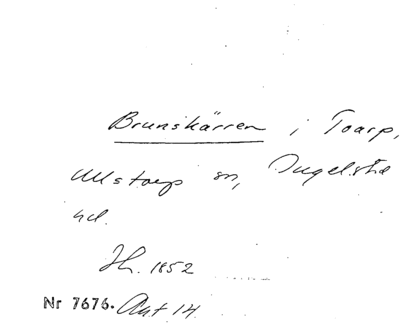 Brunskärren i Toarp,
Ullstorp sn, Ingelstad
hd.
Jh. 1852
Nr 7676. Aut 14.